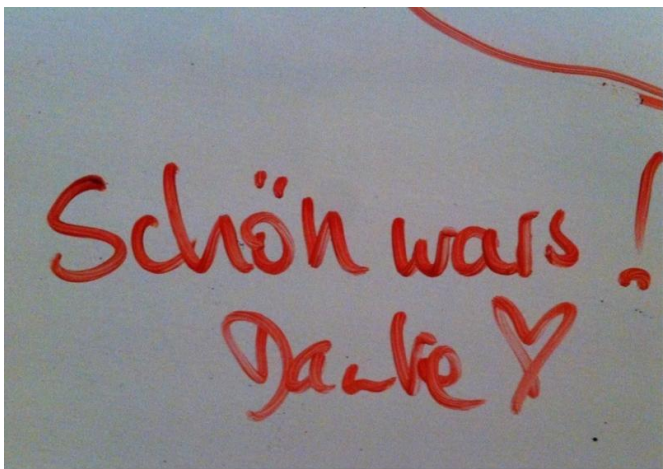 Schön wars!
Danke ♡